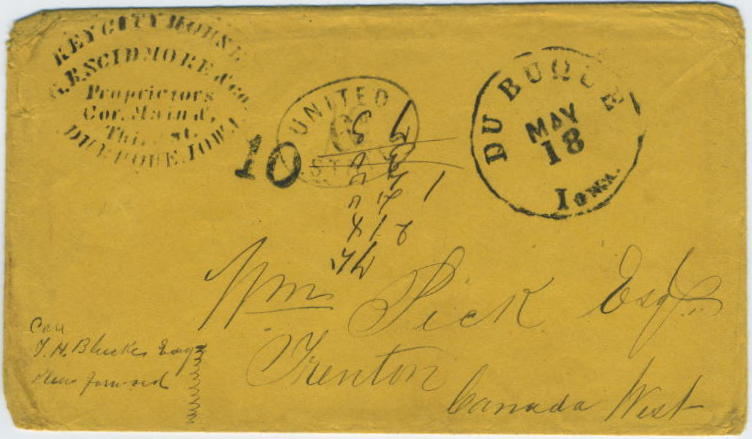 KEY CITY HOUSE
G.B. SCIDMORE & CO.
Proprietors
Cor. Main &
Third St.
DUBUQUE, IOWA.
10
UNITED
6
STATES
DUBUQUE
MAY
18
Iowa.
Wm Pick Esq
Trenton
Canada West
Care
Esq
Please forward